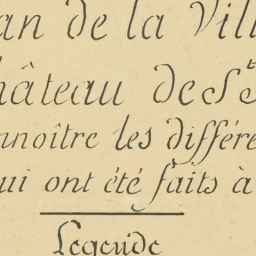 an de la Vill
hâteau de St
nnoître les différe
ui ont été faits à
Legende